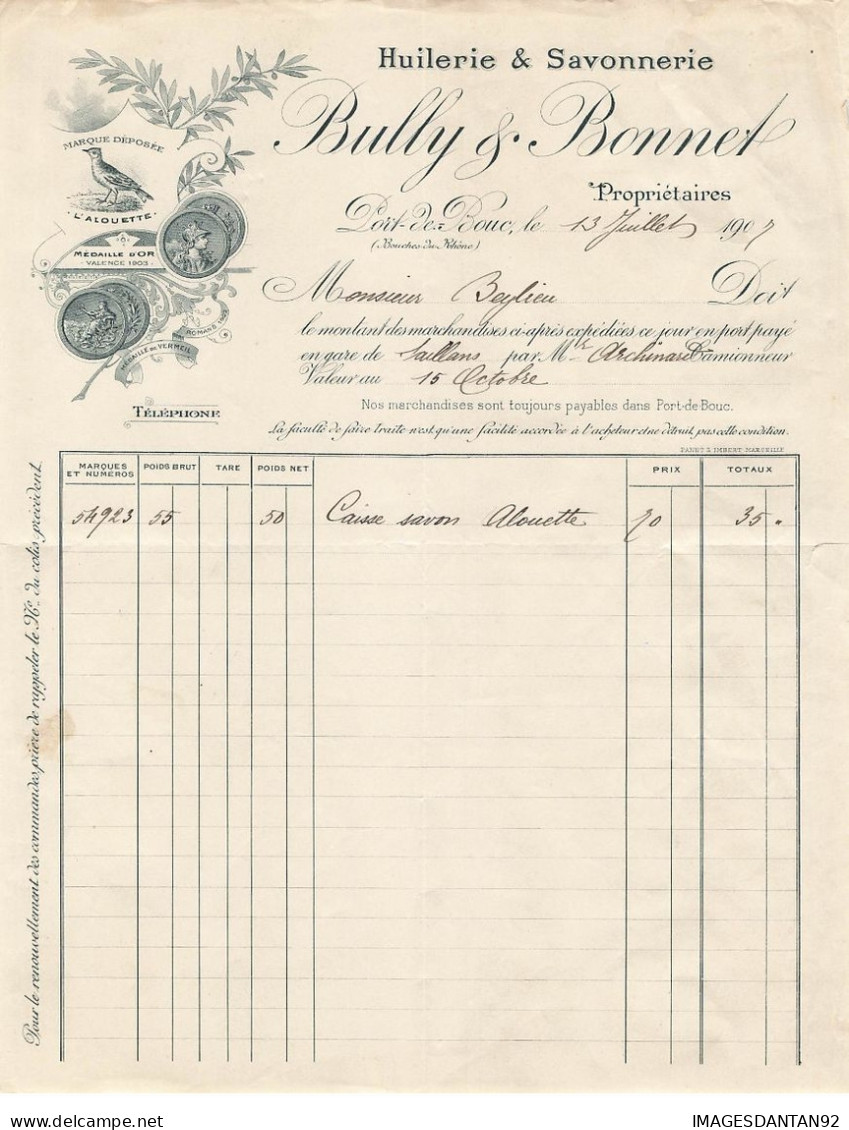 Huilerie & Savonnerie
Bully & Bonnet
Propriétaires
MARQUE DÉPOSÉE
L'ALOUETTE
MÉDAILLE D'OR
VALENCE 1903
MÉDAILLE DE VERMEIL
ROMANS
TÉLÉPHONE
Port-de-Bouc, le 13 Juillet 1907
(Bouches du Rhône)
Monsieur Beylieu Doit
le montant des marchandises ci-après expédiées ce jour en port payé
en gare de Saillans par Mr Archinard Camionneur
Valeur au 15 Octobre
Nos marchandises sont toujours payables dans Port-de-Bouc.
La faculté de faire traite n'est qu'une facilité accordée à l'acheteur et ne détruit pas cette condition.
MARQUES ET NUMÉROS POIDS BRUT TARE POIDS NET PRIX TOTAUX
54923 55 50 Caisse savon Alouette 70 35 "
Pour le renouvellement des commandes, prière de rappeler le No. du colis précédent.
delcampe.net
IMAGESDANTAN92